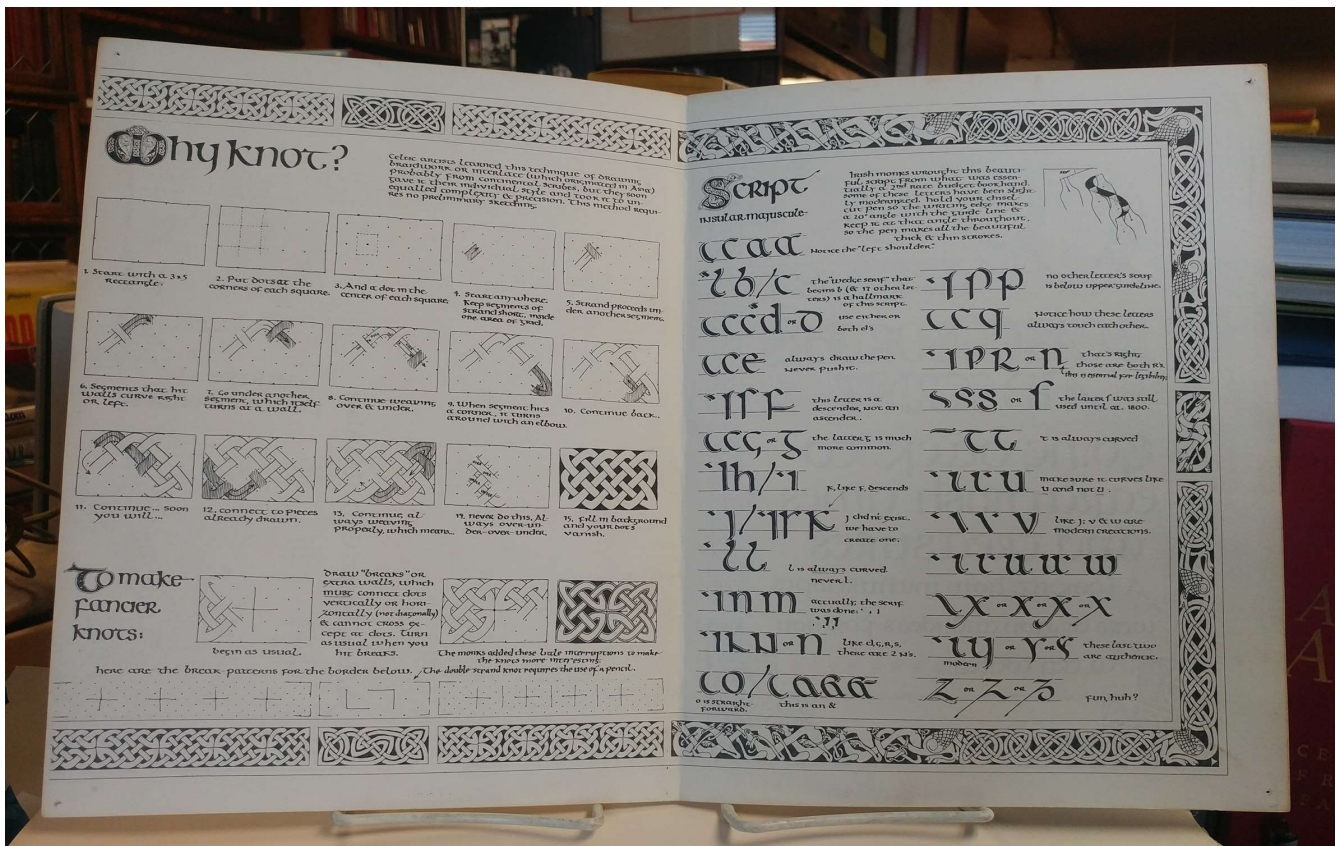 Why knot?
Celtic artists learned this technique of drawing
braidwork or interlace (which originated in Asia)
probably from continental scribes, but they soon
gave it their individual style and took it to un-
equalled complexity & precision. This method requi-
res no preliminary sketching.
1. Start with a 3x5
rectangle.
2. Put dots at the
corners of each square.
3. And a dot in the
center of each square.
4. Start anywhere.
Keep segments of
strand short, inside
one area of grid.
5. Strand proceeds un-
der another segment.
6. Segments that hit
walls curve right
or left.
7. Go under another
segment, which itself
turns at a wall.
8. Continue weaving
over & under.
9. When segment hits
a corner, it turns
around with an elbow.
10. Continue back..
11. Continue... soon
you will...
12. connect to pieces
already drawn.
13. Continue, al-
ways weaving
properly, which means..
14. never do this, Al-
ways over-un-
der-over-under.
15. Fill in background
and your dots
vanish.
To make
fancier
knots:
begin as usual.
Draw "breaks" or
extra walls, which
must connect dots
vertically or hori-
zontally (not diagonally)
& cannot cross ex-
cept at dots. Turn
as usual when you
hit breaks.
The monks added these little interruptions to make
the knots more interesting.
here are the break-patterns for the border below.
The double strand knot requires the use of a pencil.
Script
insular majuscule
Irish monks wrought this beauti-
ful script from what was essen-
tially a 2nd rate budget bookhand.
Some of these letters have been slight-
ly modernized. hold your chisel-
cut pen so the writing edge makes
a 20° angle with the guide line &
keep it at that angle throughout,
so the pen makes all the beautiful
thick & thin strokes.
c c a a
Notice the "left shoulder."
l b/c
The "wedge serif" that
begins b (& 17 other let-
ters) is a hallmark
of this script.
c c c d or d
use either or
both d's
c c e
always draw the pen.
Never push it.
f
this letter is a
descender, not an
ascender.
c c g or g
the latter g is much
more common.
l h/i
K, like F, descends
j/k
J didn't exist.
we have to
create one.
l l
l is always curved.
never l.
i n m
actually, the serif
was done:
n or n
like d, G, R, S,
there are 2 N's.
c o/c a &
o is straight-
forward.
this is an &
i p p
no other letter's serif
is below upper guideline.
c c q
Notice how these letters
always touch each other.
i p R or n
that's right
those are both R's
this is essential for legibility
s s s or f
the latter f was still
used until ct. 1800.
t t
t is always curved
u
make sure it curves like
u and not u.
v
like J; v & w are
modern creations.
w w
x or x or x or x
y or y or y
modern
these last two
are authentic.
z or z or z
fun, huh?